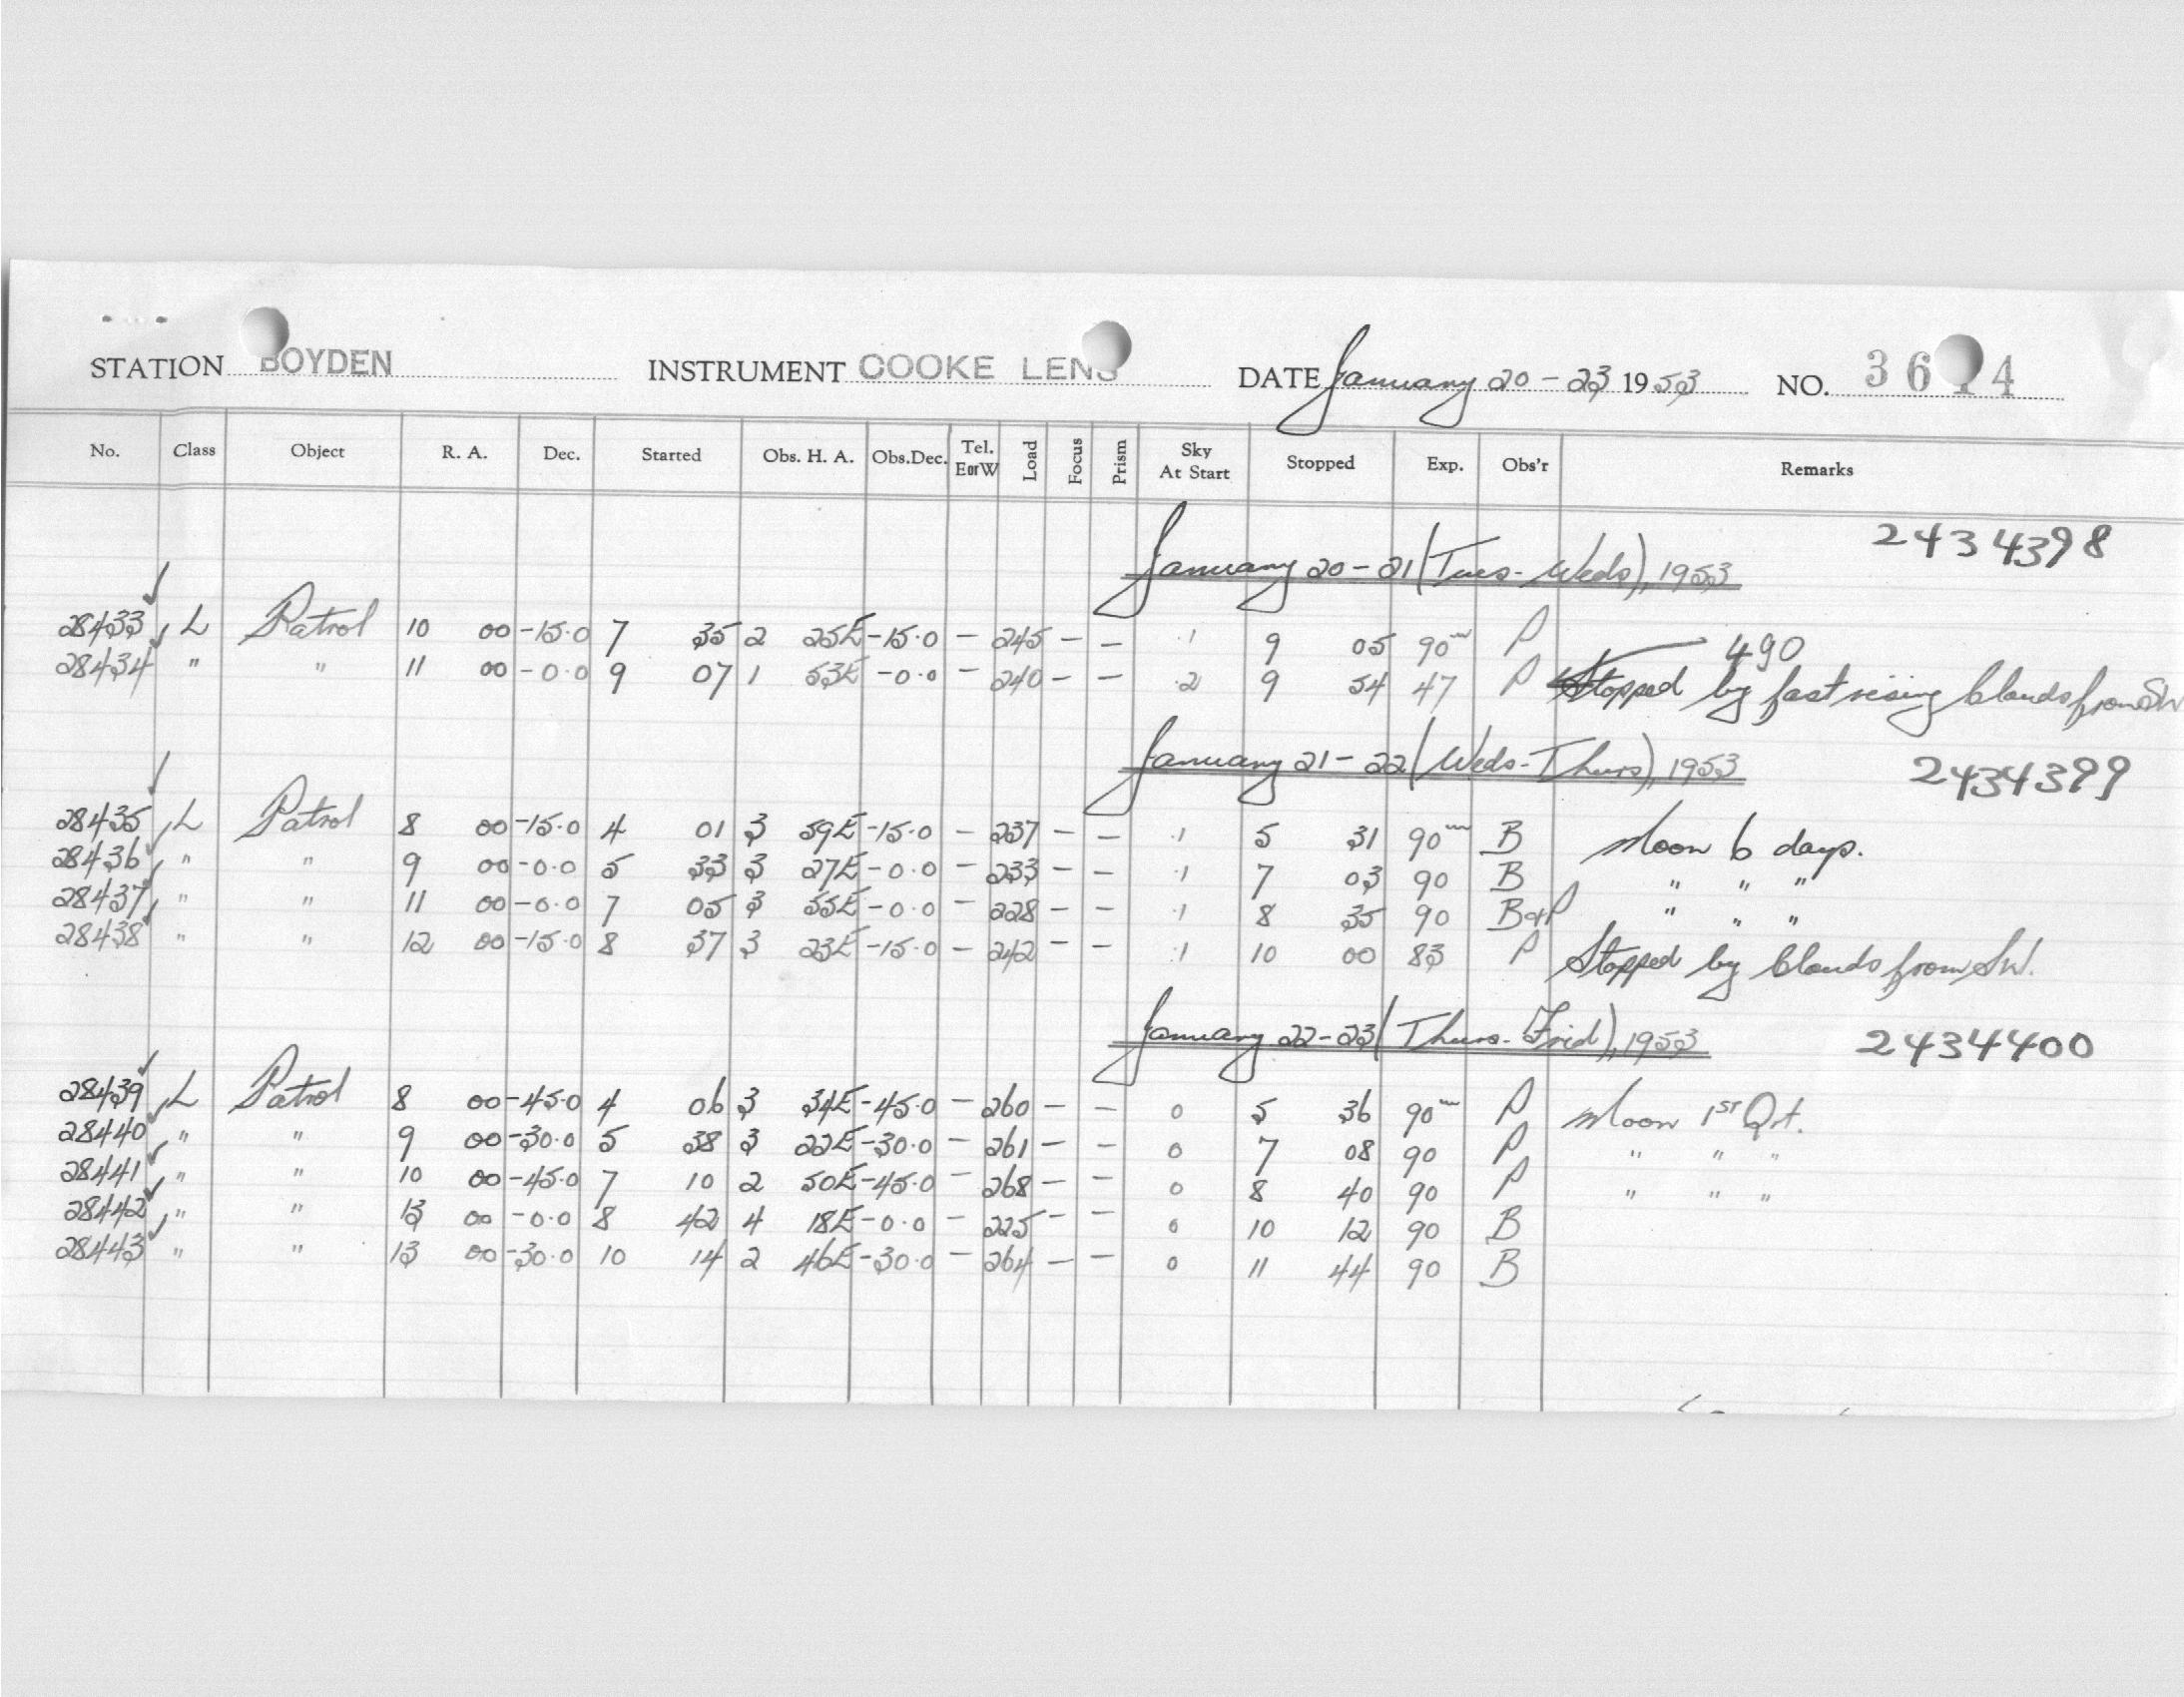 STATION BOYDEN INSTRUMENT COOKE LENS DATE January 20-23 1953 NO. 3614
No. Class Object R. A. Dec. Started Obs. H. A. Obs.Dec. Tel. EorW Load Focus Prism Sky At Start Stopped Exp. Obs'r Remarks
January 20-21 (Tues-Weds), 1953 2434398
28433 L Patrol 10 00 -15.0 7 35 2 25E -15.0 - 245 - - .1 9 05 90m P 490
28434 " " 11 00 -0.0 9 07 1 53E -0.0 - 240 - - .2 9 54 47 P Stopped by fast rising Clouds from SW
January 21-22 (Weds-Thurs), 1953 2434399
28435 L Patrol 8 00 -15.0 4 01 3 59E -15.0 - 237 - - .1 5 31 90m B Moon 6 days.
28436 " " 9 00 -0.0 5 33 3 27E -0.0 - 233 - - .1 7 03 90 B " " "
28437 " " 11 00 -0.0 7 05 3 55E -0.0 - 228 - - .1 8 35 90 B&P " " "
28438 " " 12 00 -15.0 8 37 3 23E -15.0 - 242 - - .1 10 00 83 P Stopped by Clouds from SW.
January 22-23 (Thurs-Frid), 1953 2434400
28439 L Patrol 8 00 -45.0 4 06 3 34E -45.0 - 260 - - 0 5 36 90m P Moon 1st Qrt.
28440 " " 9 00 -30.0 5 38 3 22E -30.0 - 261 - - 0 7 08 90 P " " "
28441 " " 10 00 -45.0 7 10 2 50E -45.0 - 268 - - 0 8 40 90 P " " "
28442 " " 13 00 -0.0 8 42 4 18E -0.0 - 225 - - 0 10 12 90 B
28443 " " 13 00 -30.0 10 14 2 46E -30.0 - 264 - - 0 11 44 90 B